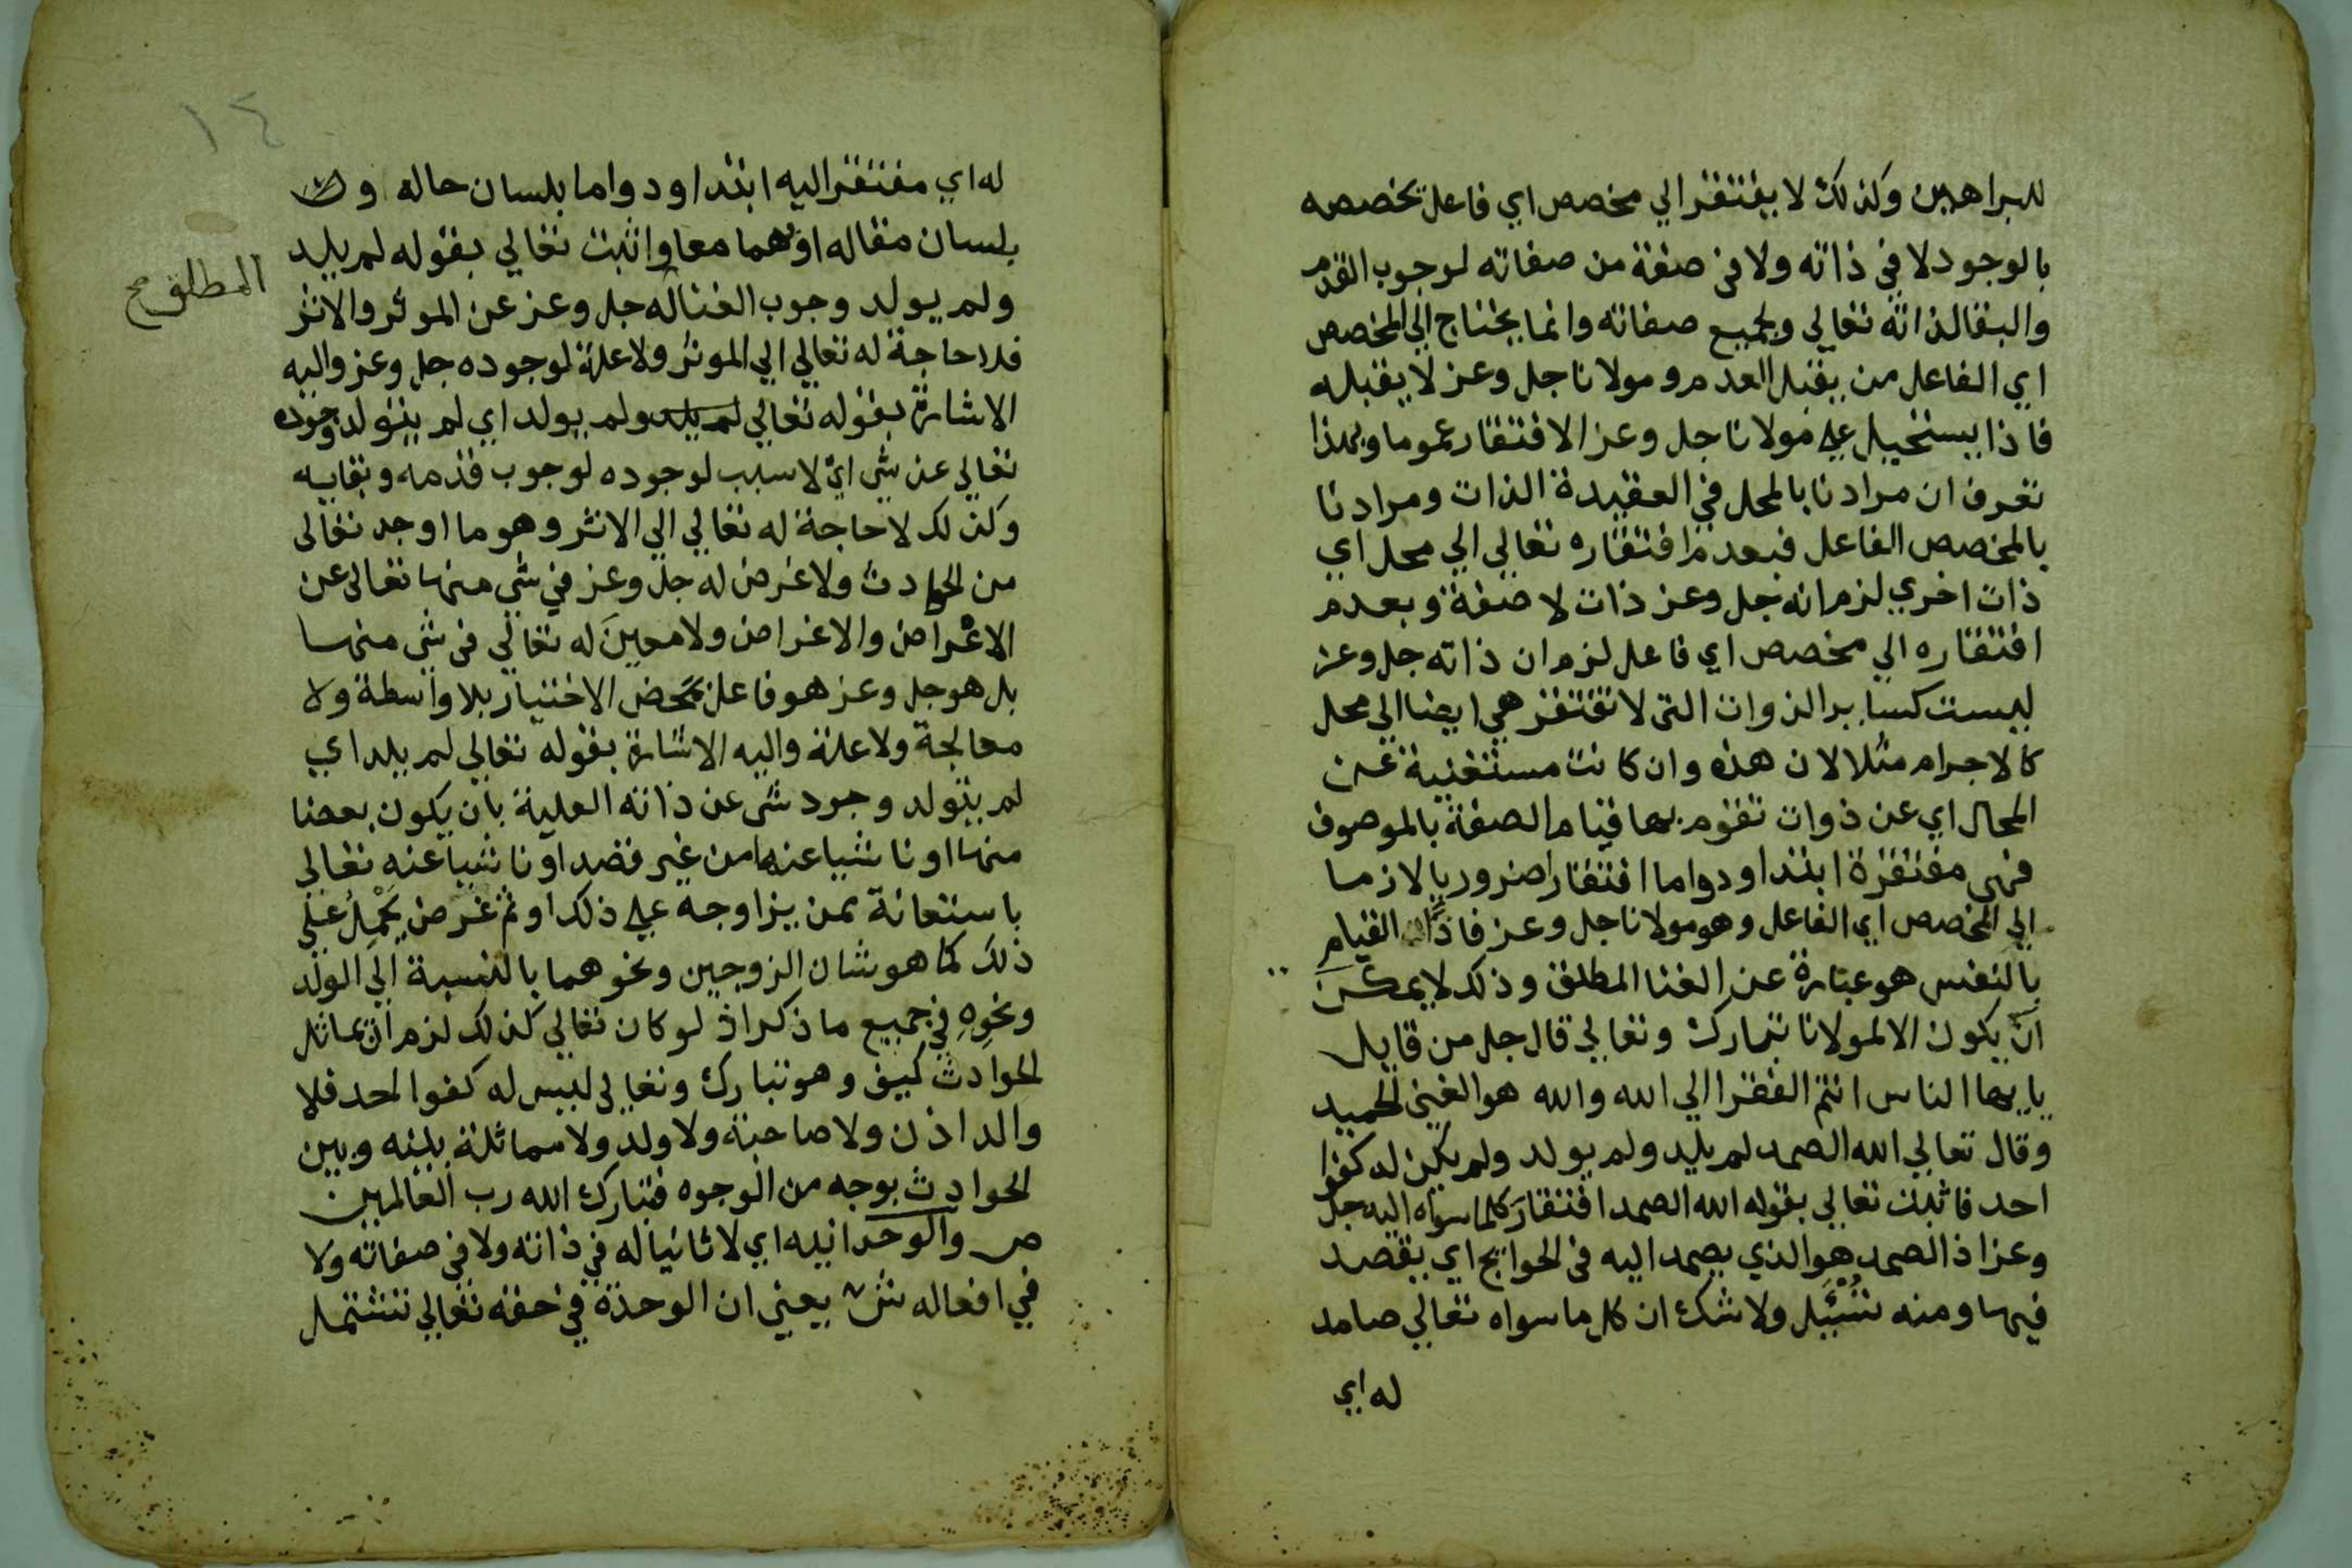 للبراهين وكذلك لا يفتقر الي مخصص اي فاعل يخصصه
بالوجود لا في ذاته ولا في صفة من صفاته لوجوب القدم
والبقا لذاته تعالي ولجميع صفاته وانما يحتاج الي المخصص
اي الفاعل من يقبل العدم ومولانا جل وعز لا يقبله
فاذا يستحيل علي مولانا جل وعز الافتقار عموما وبهذا
تعرف ان مرادنا بالمحل في العقيدة الذات ومرادنا
بالمخصص الفاعل فبعدم افتقاره تعالي الي محل اي
ذات اخري لزم انه جل وعز ذات لا صفة وبعدم
افتقاره الي مخصص اي فاعل لزم ان ذاته جل وعز
ليست كساير الذوات التي لا تفتقر هي ايضا الي محل
كالاجرام مثلا لان هذه وان كانت مستغنية عن
المحال اي عن ذوات تقوم بها قيام الصفة بالموصوف
فهي مفتقرة ابتدا ودواما افتقارا ضروريا لازما
الي المخصص اي الفاعل وهو مولانا جل وعز فاذا القيام
بالنفس هو عبارة عن الغنا المطلق وذلك لا يمكن
ان يكون الا لمولانا تبارك وتعالي قال جل من قايل
يايها الناس انتم الفقرا الي الله والله هو الغني الحميد
وقال تعالي الله الصمد لم يلد ولم يولد ولم يكن له كفوا
احد فاثبت تعالي بقوله الله الصمد افتقار كلما سواه اليه جل
وعز اذ الصمد هو الذي يصمد اليه في الحوايج اي يقصد
فيها ومنه تُسْئَل ولا شك ان كل ما سواه تعالي صامد
له اي
١٤
له اي مفتقرا اليه ابتدا ودواما بلسان حاله و
بلسان مقاله او بهما معا واثبت تعالي بقوله لم يلد
المطلق صح
ولم يولد وجوب الغنا له جل وعز عن الموثر والاثر
فلا حاجة له تعالي الي الموثر ولا علة لوجوده جل وعز واليه
الاشارة بقوله تعالي لم يلد ولم يولد اي لم يتولد وجوده
تعالي عن شي اي لا سبب لوجوده لوجوب قدمه وبقايه
وكذلك لا حاجة له تعالي الي الاثر وهو ما اوجد تعالى
من الحوادث ولا غرض له جل وعز في شي منها تعالى عن
الاعراض والاغراض ولا معين له تعالي في شي منها
بل هو جل وعز هو فاعل بمحض الاختيار بلا واسطة ولا
معالجة ولا علة واليه الاشارة بقوله تعالي لم يلد اي
لم يتولد وجود شي عن ذاته العلية بان يكون بعضا
منها او ناشيا عنها من غير قصد او ناشيا عنه تعالي
باستعانة بمن يزاوجه علي ذلك او ثم غرض يحمل علي
ذلك كما هو شان الزوجين ونحوهما بالنسبة الي الولد
ونحوه في جميع ما ذكر اذ لو كان تعالي كذلك لزم ان يماثل
الحوادث كيف وهو تبارك وتعالي ليس له كفوا احد فلا
والد اذن ولا صاحبة ولا ولد ولا مماثلة بينه وبين
الحوادث بوجه من الوجوه فتبارك الله رب العالمين
ص والوحدانيه اي لا ثانيا له في ذاته ولا في صفاته ولا
في افعاله ش يعني ان الوحدة في حقه تعالي تشتمل